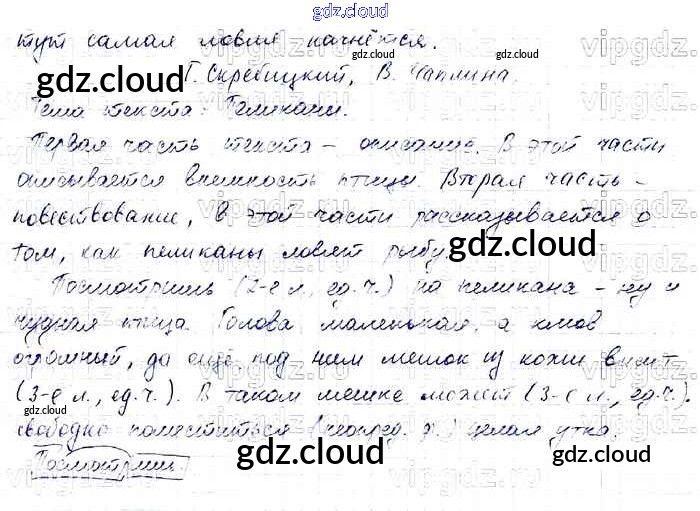 gdz.cloud
тут самая ловля начнётся.
Г. Скребицкий, В. Чаплина.
Тема текста: Пеликаны.
Первая часть текста – описание. В этой части
описывается внешность птицы. Вторая часть –
повествование, в этой части рассказывается о
том, как пеликаны ловят рыбу.
Посмотришь (2-е л., ед.ч.) на пеликана – ну и
чудная птица. Голова маленькая, а клюв
огромный, да ещё под ним мешок из кожи висит
(3-е л., ед.ч.). В таком мешке может (3-е л., ед.ч.)
свободно поместиться (неопред. ф.) целая утка.
Посмотришь.